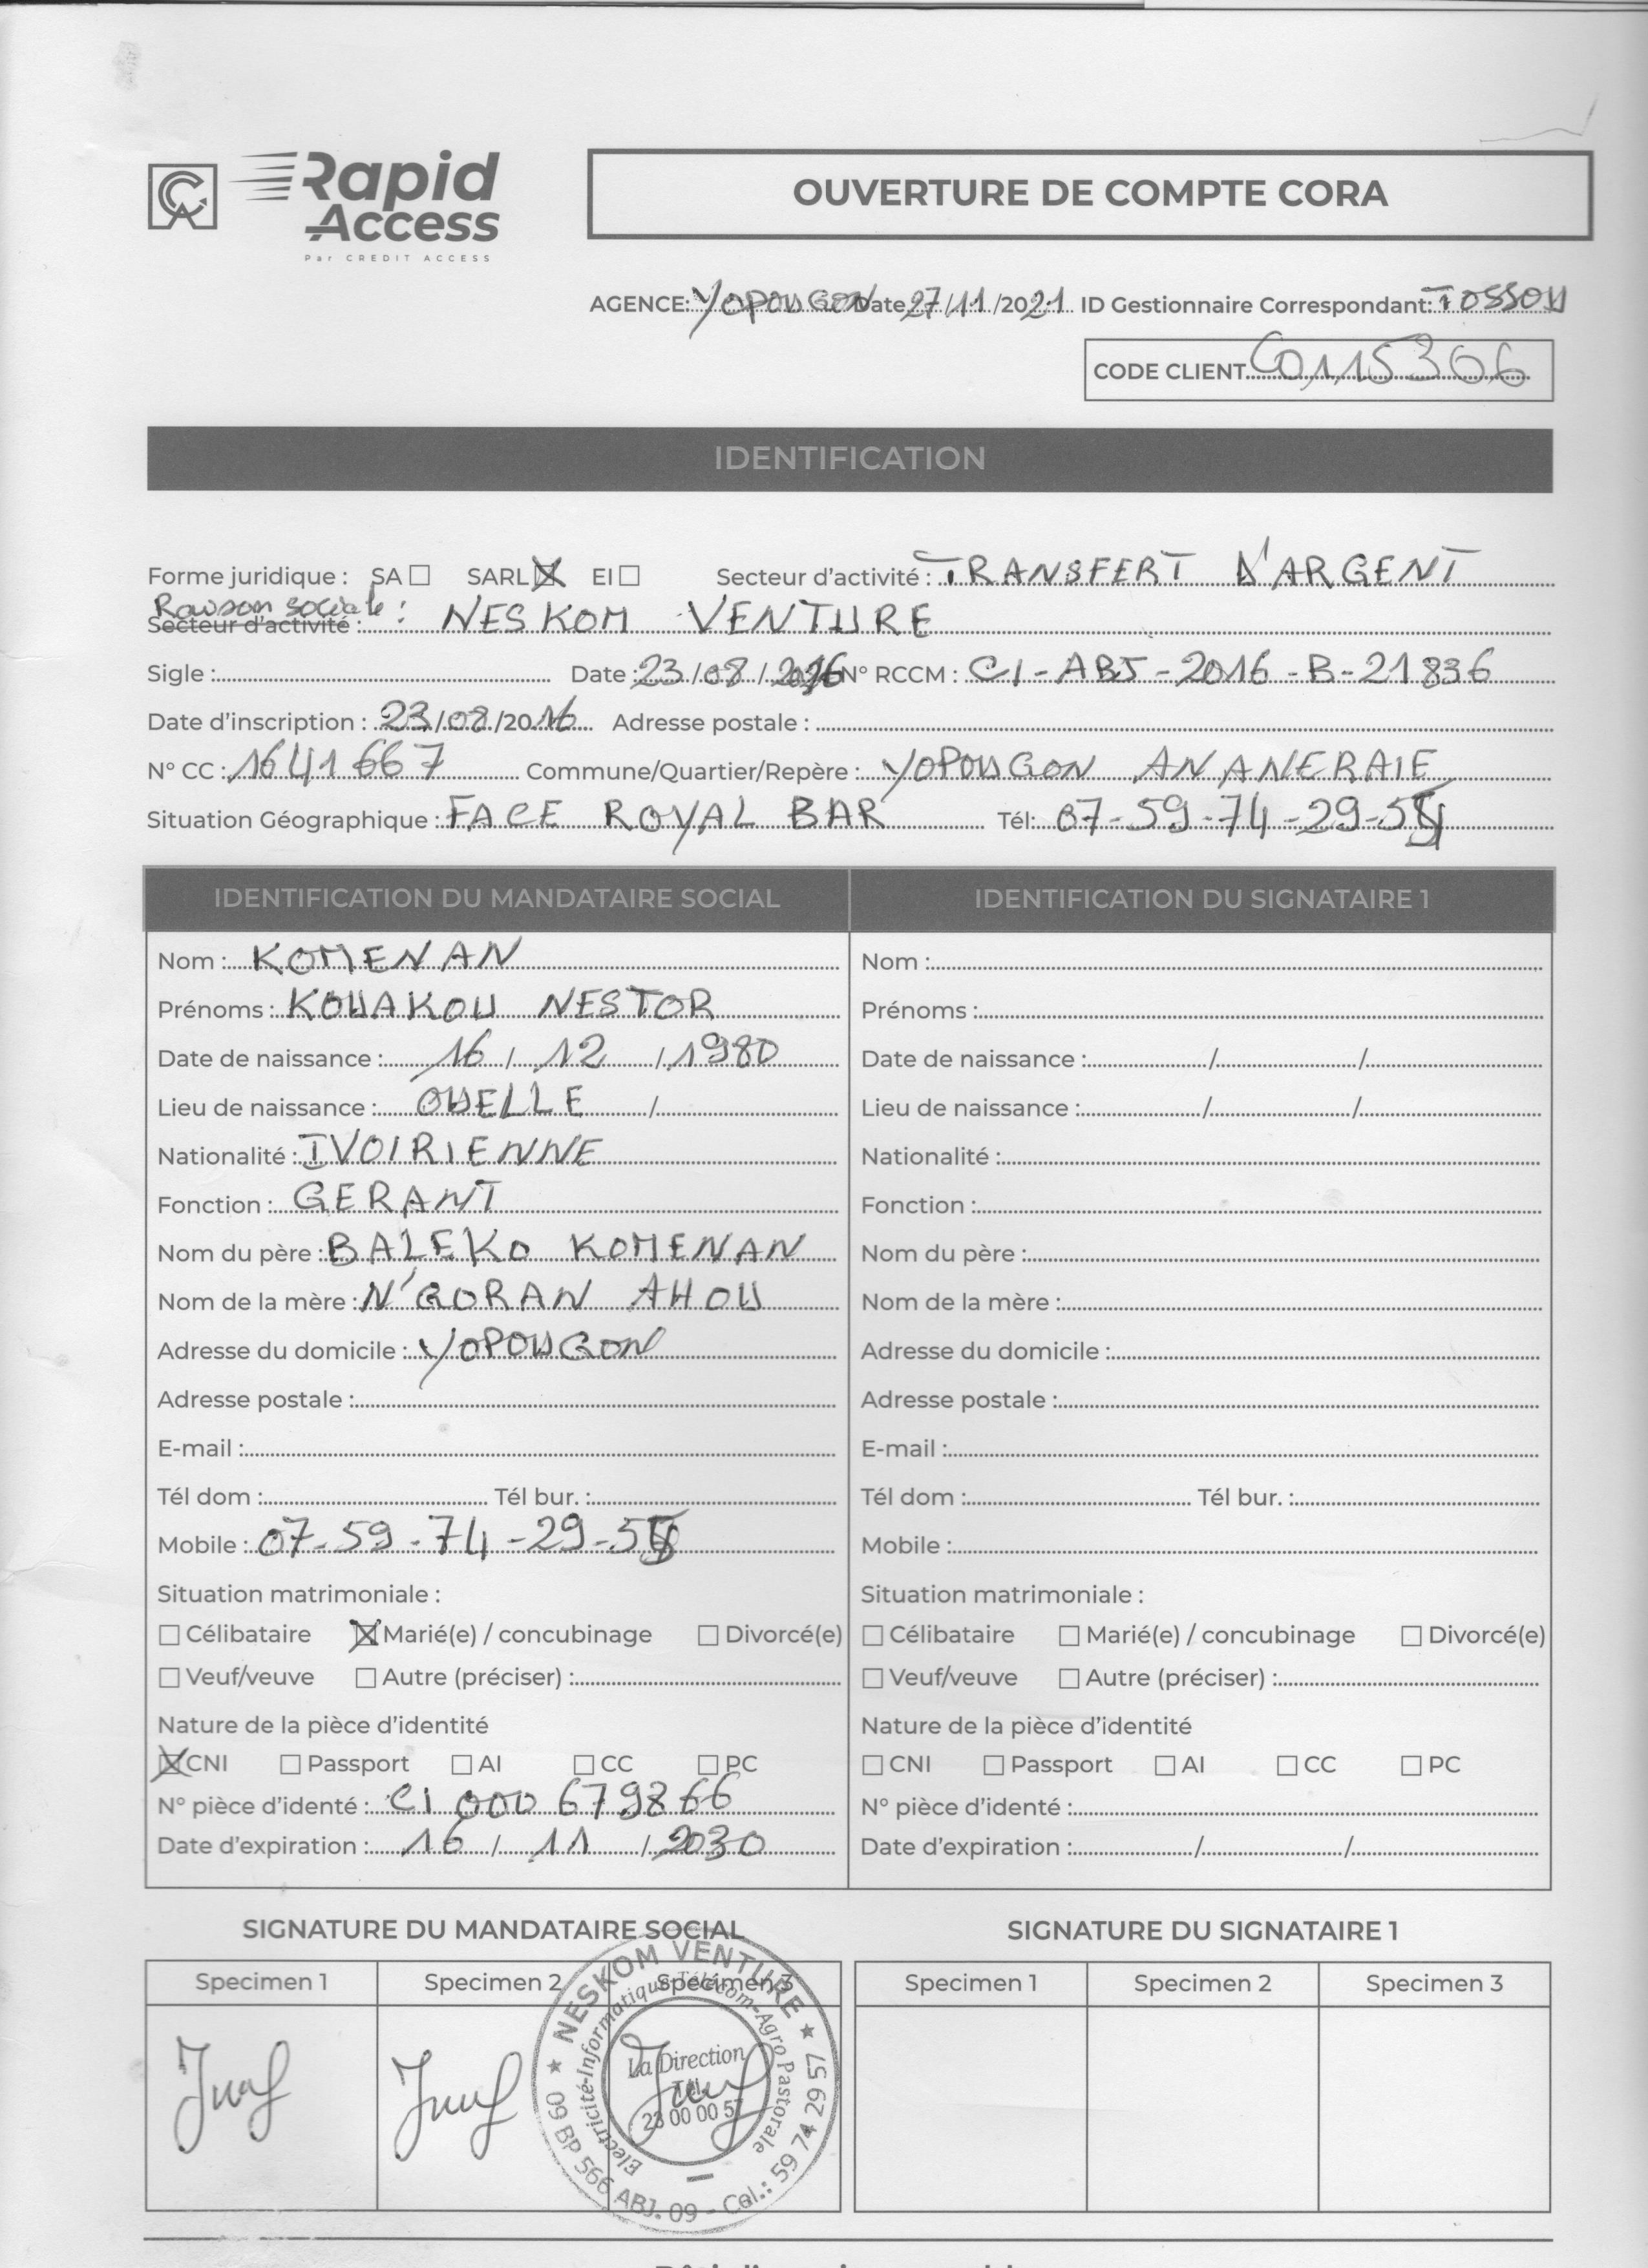 CA Rapid Access
Par CREDIT ACCESS
OUVERTURE DE COMPTE CORA
AGENCE: YOPOUGON Date 27/11/2021 ID Gestionnaire Correspondant: TOSSOU
CODE CLIENT C0115306
IDENTIFICATION
Forme juridique : SA ☐ SARL ☒ EI ☐ Secteur d'activité : TRANSFERT D'ARGENT
Raison sociale :
Secteur d'activité : NESKOM VENTURE
Sigle : Date : 23/08/2016 N° RCCM : CI-ABJ-2016-B-21836
Date d'inscription : 23/08/2016 Adresse postale :
N° CC : 1641667 Commune/Quartier/Repère : YOPOUGON ANANERAIE
Situation Géographique : FACE ROYAL BAR Tél: 07-59-74-29-5
IDENTIFICATION DU MANDATAIRE SOCIAL IDENTIFICATION DU SIGNATAIRE 1
Nom : KOMENAN Nom :
Prénoms : KOUAKOU NESTOR Prénoms :
Date de naissance : 16 / 12 / 1980 Date de naissance : / /
Lieu de naissance : OUELLE / Lieu de naissance : / /
Nationalité : IVOIRIENNE Nationalité :
Fonction : GERANT Fonction :
Nom du père : BALEKO KOMENAN Nom du père :
Nom de la mère : N'GORAN AHOU Nom de la mère :
Adresse du domicile : YOPOUGON Adresse du domicile :
Adresse postale : Adresse postale :
E-mail : E-mail :
Tél dom : Tél bur. : Tél dom : Tél bur. :
Mobile : 07-59-74-29-5 Mobile :
Situation matrimoniale : Situation matrimoniale :
☐ Célibataire ☒ Marié(e) / concubinage ☐ Divorcé(e) ☐ Célibataire ☐ Marié(e) / concubinage ☐ Divorcé(e)
☐ Veuf/veuve ☐ Autre (préciser) : ☐ Veuf/veuve ☐ Autre (préciser) :
Nature de la pièce d'identité Nature de la pièce d'identité
☒ CNI ☐ Passport ☐ AI ☐ CC ☐ PC ☐ CNI ☐ Passport ☐ AI ☐ CC ☐ PC
N° pièce d'identé : CI 000 679866 N° pièce d'identé :
Date d'expiration : 16 / 11 / 2030 Date d'expiration : / /
SIGNATURE DU MANDATAIRE SOCIAL SIGNATURE DU SIGNATAIRE 1
Specimen 1 Specimen 2 Specimen 3 Specimen 1 Specimen 2 Specimen 3
★ NESKOM VENTURE ★
Electricité-Informatique-Télécom-Agro Pastorale
La Direction
Tél.
23 00 00 57
09 BP 566 ABJ. 09 - Cel.: 59 74 29 57